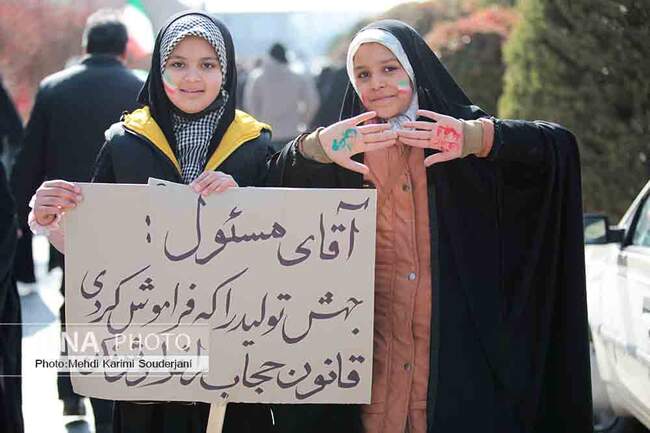 آقای مسئول :
جهش تولید را که فراموش کردی
قانون حجاب را
IQNA PHOTO
Photo:Mehdi Karimi Souderjani